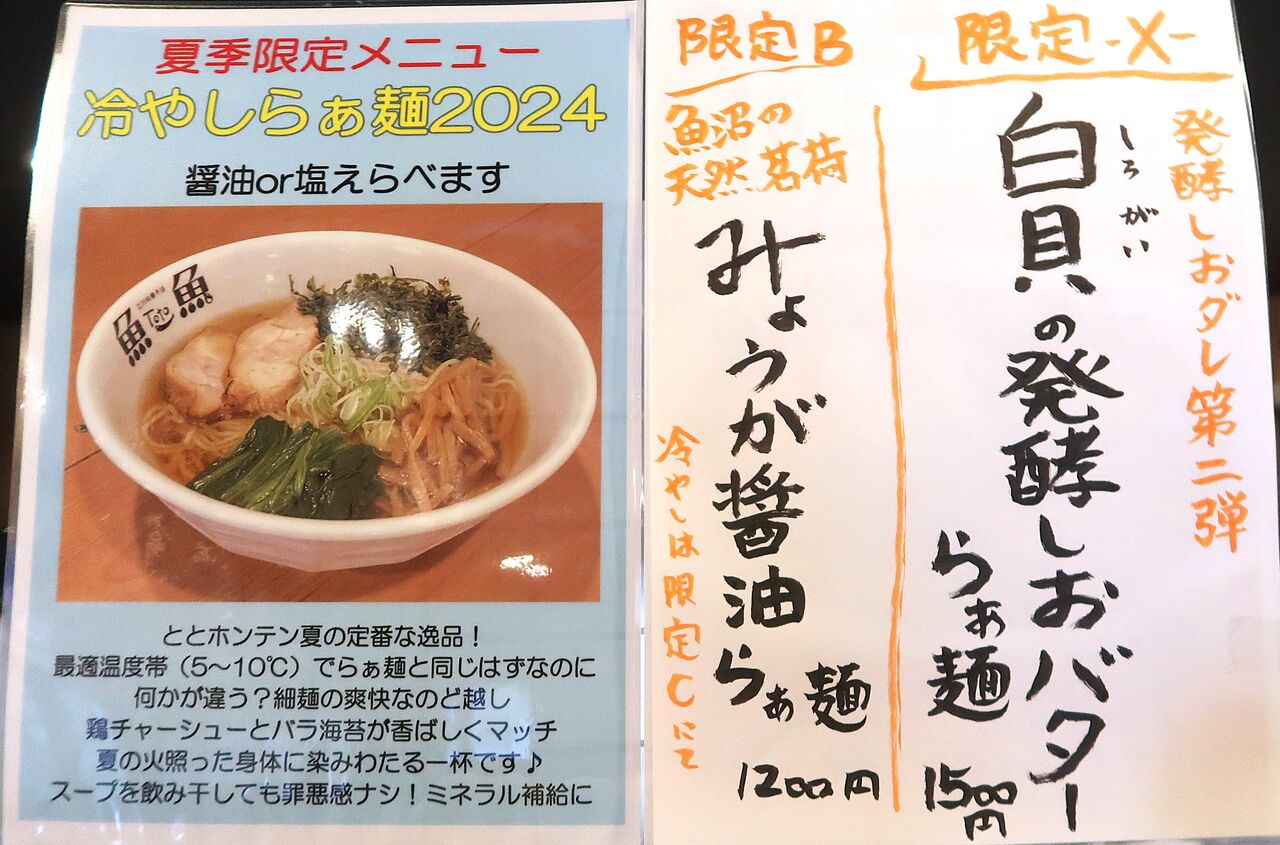 夏季限定メニュー
冷やしらぁ麺2024
醤油or塩えらべます
魚
Toto
魚
ととホンテン夏の定番な逸品！
最適温度帯（5～10℃）でらぁ麺と同じはずなのに
何かが違う？細麺の爽快なのど越し
鶏チャーシューとバラ海苔が香ばしくマッチ
夏の火照った身体に染みわたる一杯です♪
スープを飲み干しても罪悪感ナシ！ミネラル補給に
限定-X-
発酵しおダレ第二弾
しろがい
白貝の発酵しおバター
らぁ麺
1500円
限定B
魚沼の
天然茗荷
みょうが醤油らぁ麺
1200円
冷やしは限定Cにて